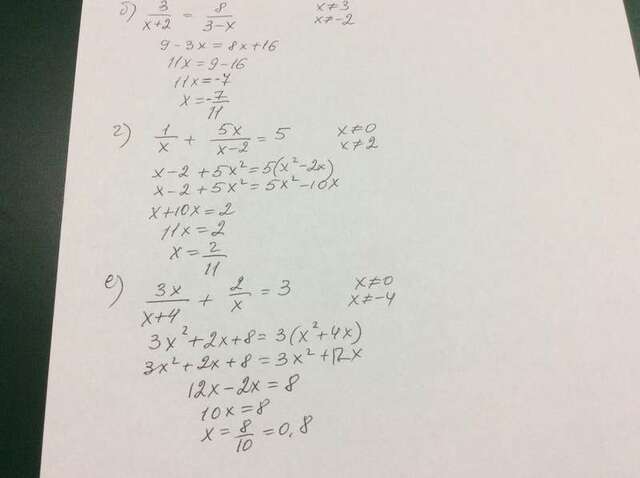 б) 3/(x+2) = 8/(3-x) x≠3
x≠-2
9-3x=8x+16
11x=9-16
11x=-7
x=-7/11
г) 1/x + 5x/(x-2) = 5 x≠0
x≠2
x-2+5x²=5(x²-2x)
x-2+5x²=5x²-10x
x+10x=2
11x=2
x=2/11
е) 3x/(x+4) + 2/x = 3 x≠0
x≠-4
3x²+2x+8=3(x²+4x)
3x²+2x+8=3x²+12x
12x-2x=8
10x=8
x=8/10=0,8